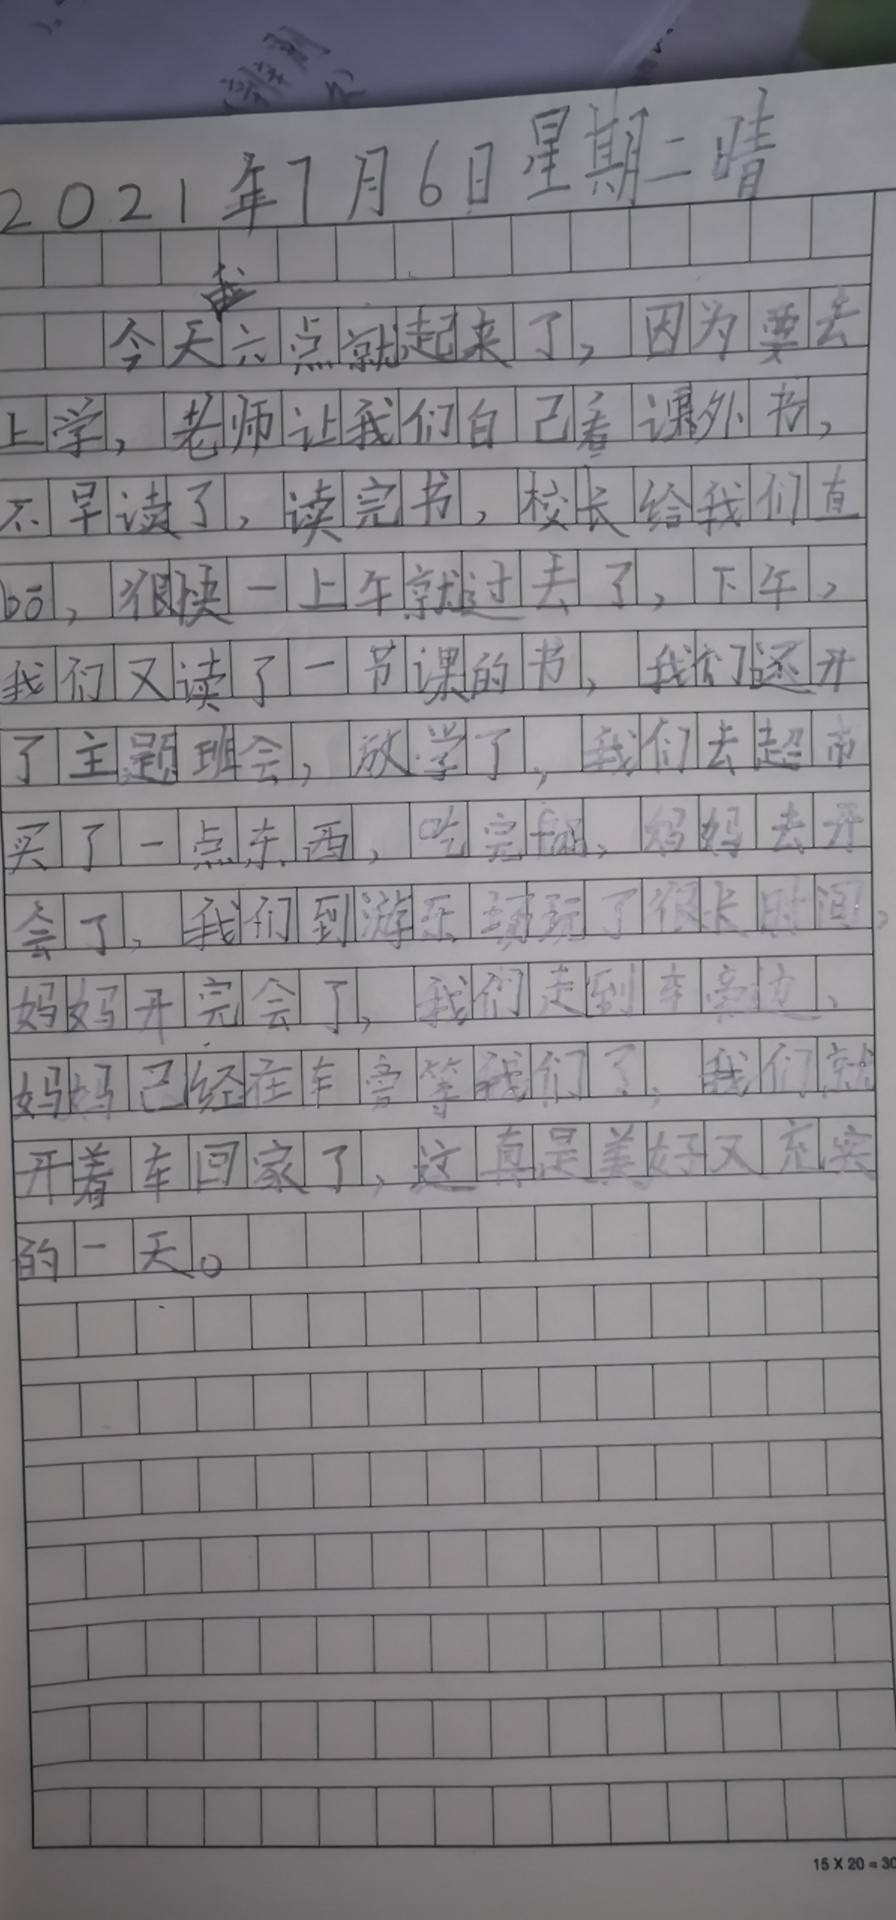 2021年7月6日星期二晴
今天我六点就起来了，因为要去
上学，老师让我们自己看课外书，
不早读了，读完书，校长给我们直
bō，很快一上午就过去了，下午，
我们又读了一节课的书，我们还开
了主题班会，放学了，我们去超市
买了一点东西，吃完饭，妈妈去开
会了，我们到游乐场玩了很长时间，
妈妈开完会了，我们走到车旁边，
妈妈已经在车旁等我们了，我们就
开着车回家了，这真是美好又充实
的一天。
15×20=30